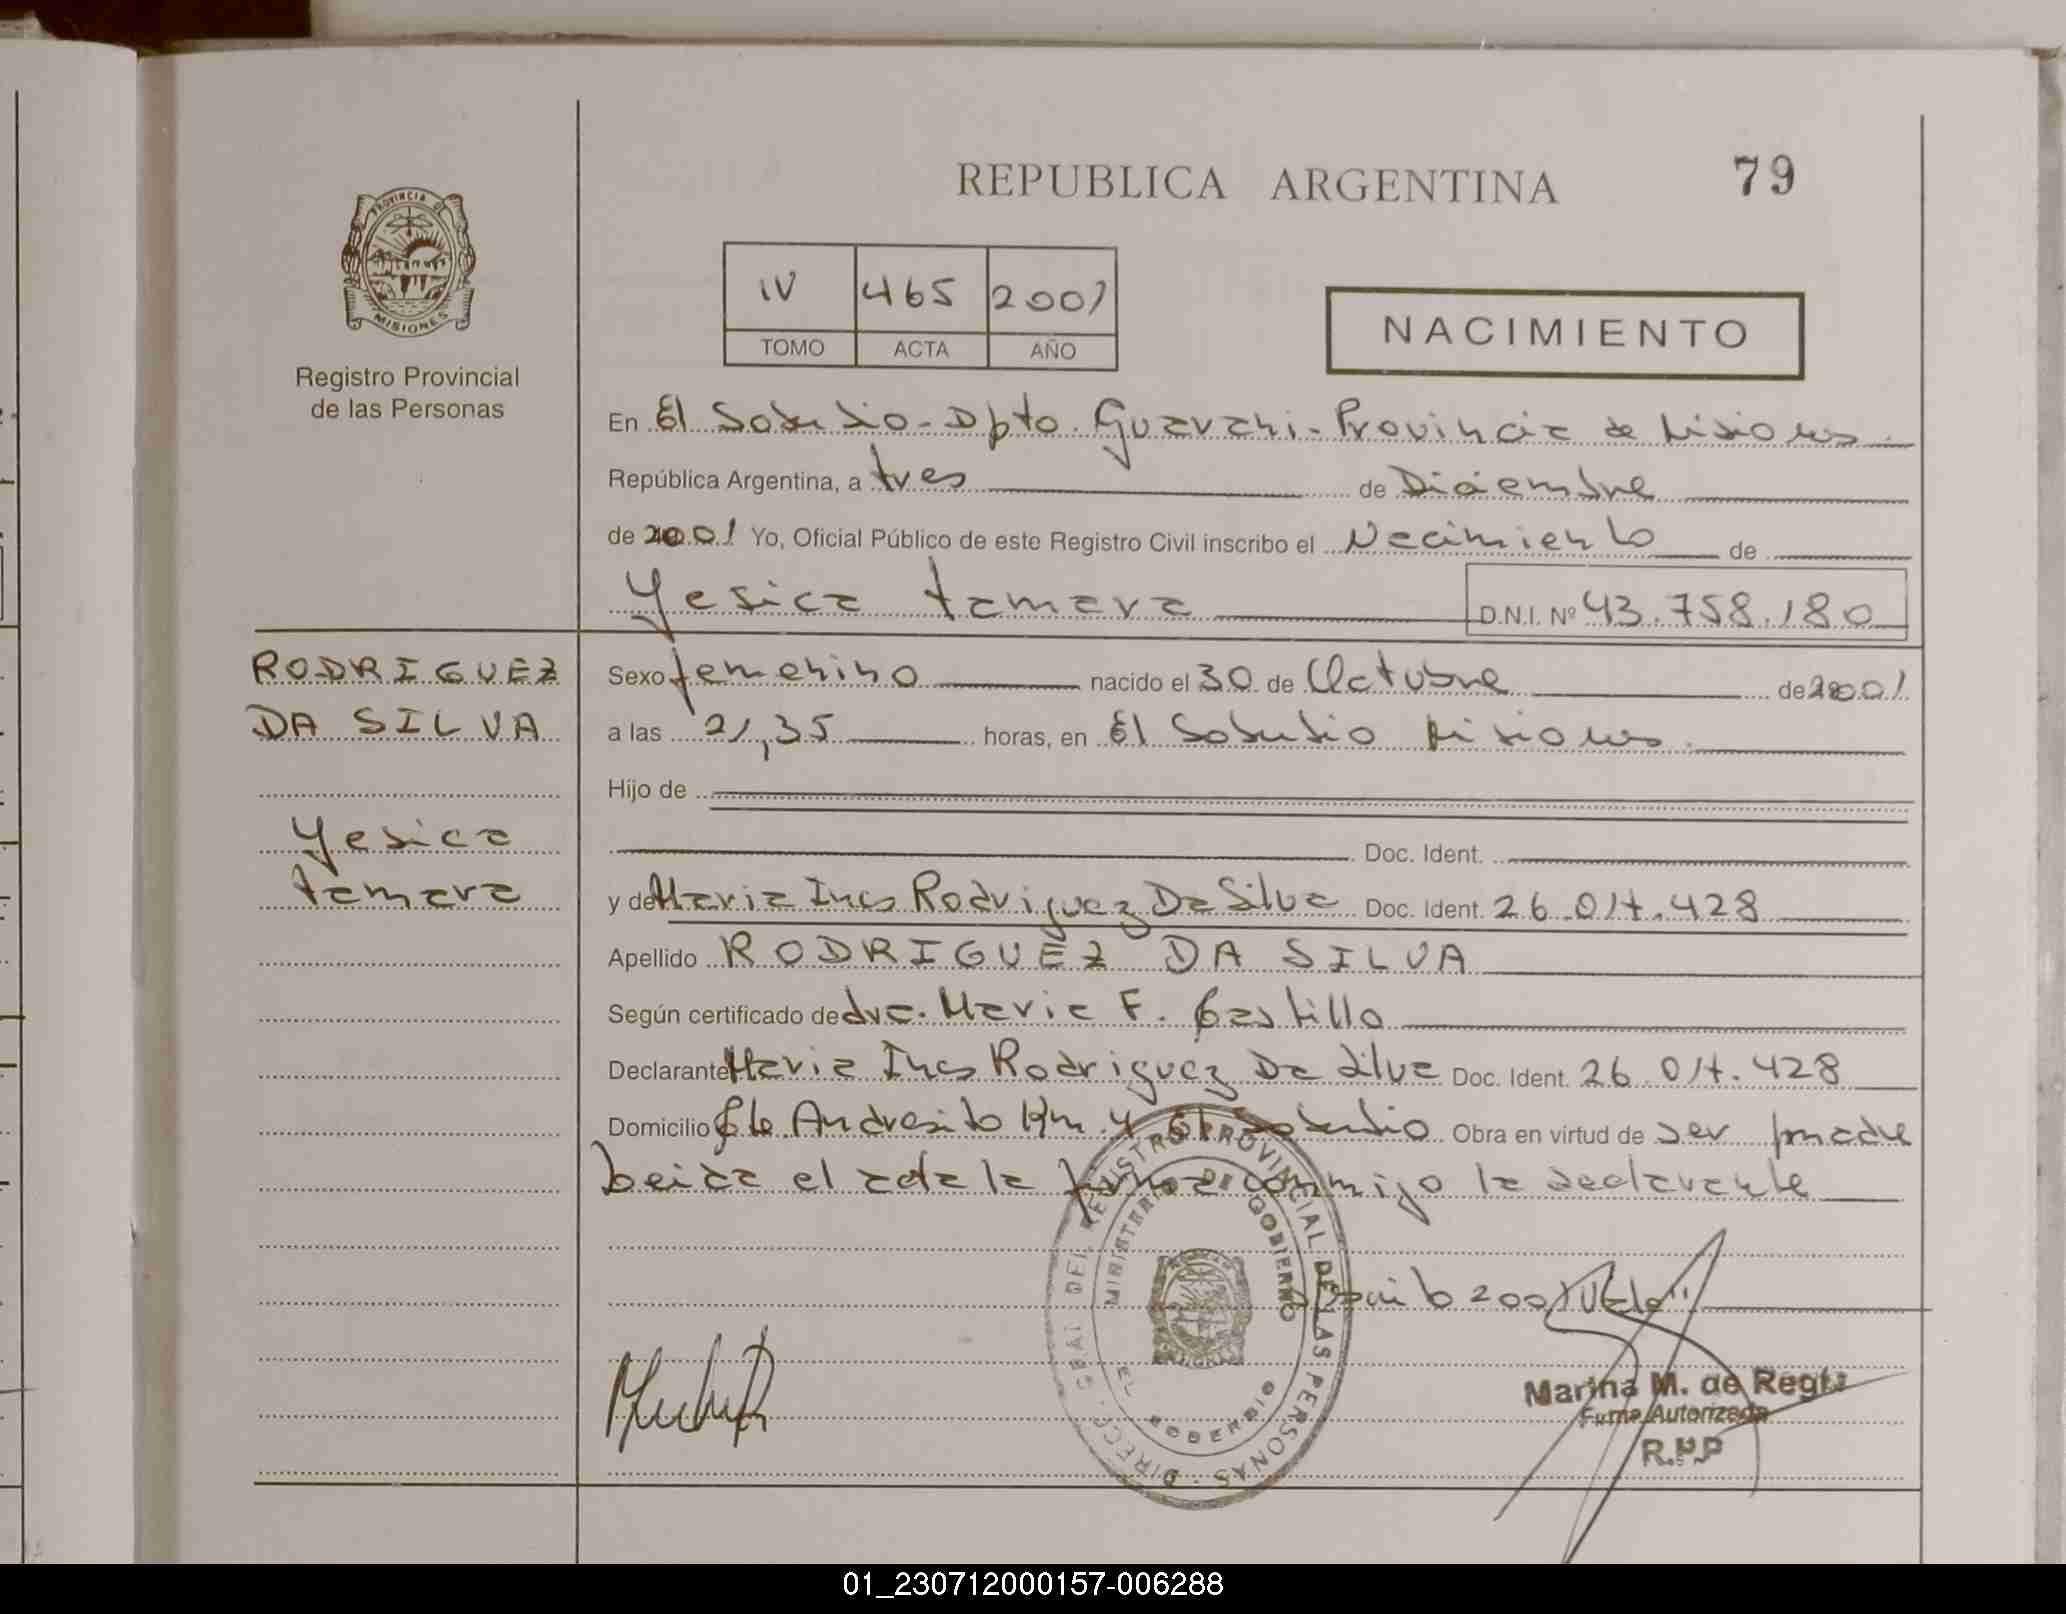 REPUBLICA ARGENTINA
79
PROVINCIA DE
MISIONES
Registro Provincial
de las Personas
IV 465 2001
TOMO ACTA AÑO
NACIMIENTO
En El Soberbio - Dpto. Guarani - Provincia de Misiones
República Argentina, a tres de Diciembre
de 2001 Yo, Oficial Público de este Registro Civil inscribo el Nacimiento de
Yesica tamara D.N.I. Nº 43.758.180
RODRIGUEZ
DA SILVA
Yesica
tamara
Sexo femenino nacido el 30 de Octubre de 2001
a las 21,35 horas, en El Soberbio Misiones
Hijo de
Doc. Ident.
y de Maria Ines Rodriguez Da Silva Doc. Ident. 26.017.428
Apellido RODRIGUEZ DA SILVA
Según certificado de dra. Maria F. Castillo
Declarante Maria Ines Rodriguez Da Silva Doc. Ident. 26.017.428
Domicilio Andresito Km 4 El Soberbio Obra en virtud de ser madre
leida el acta la firma conmigo la declarante
2001 Vale"
DIRECC. GRAL DEL REGISTRO PROVINCIAL DE LAS PERSONAS
MINISTERIO DE GOBIERNO
EL SOBERBIO
Marina M. de
Firma Autorizada
R.P.P
01_230712000157-006288